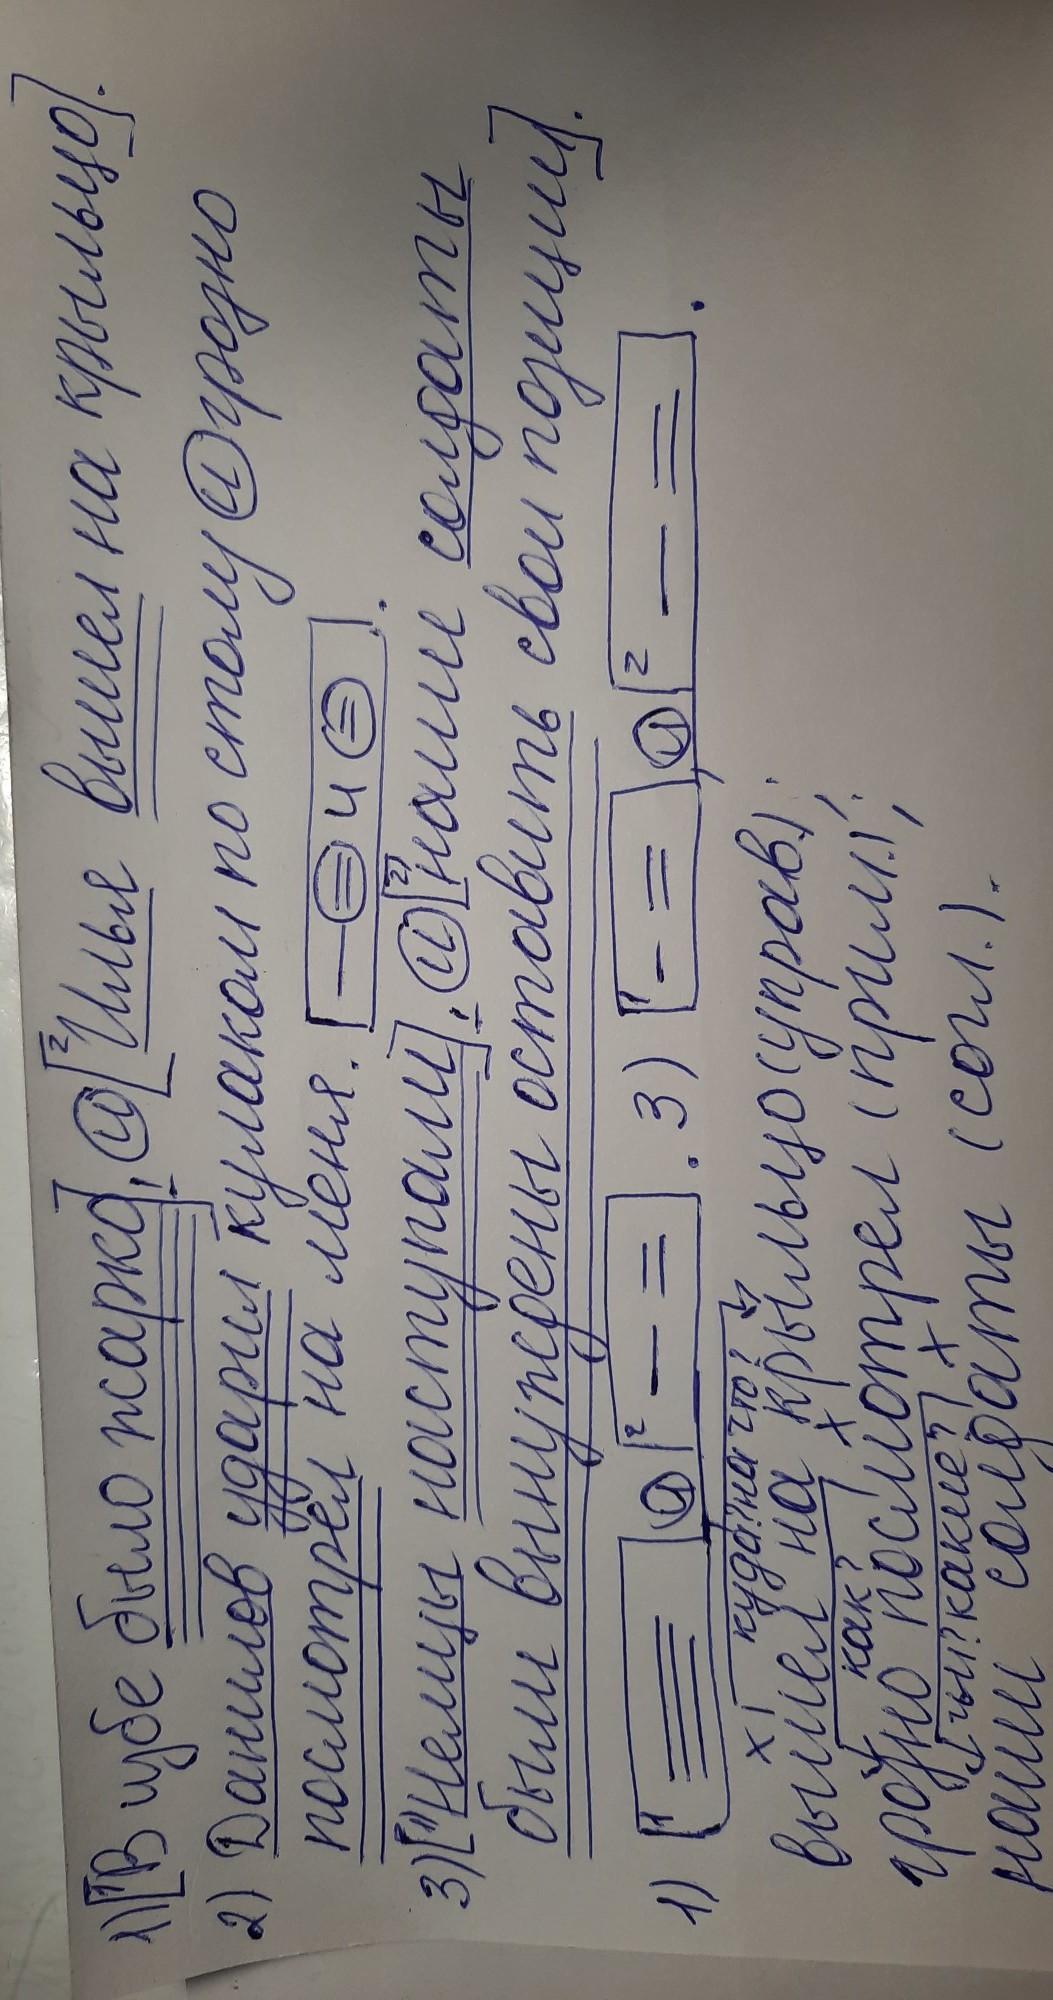 1) [¹В избе было жарко], и [²Илья вышел на крыльцо].
2) Данилов ударил кулаком по столу и грозно
посмотрел на меня. [— = и =].
3) [¹Немцы наступали], и [²наши солдаты
были вынуждены оставить свои позиции].
1) [¹ ≡], и [² — =]. 3) [¹ — =], и [² — =].
куда? на что?
х
вышел на крыльцо (управ.);
как? х
грозно посмотрел (прим.);
чьи? какие? х
наши солдаты (согл.).